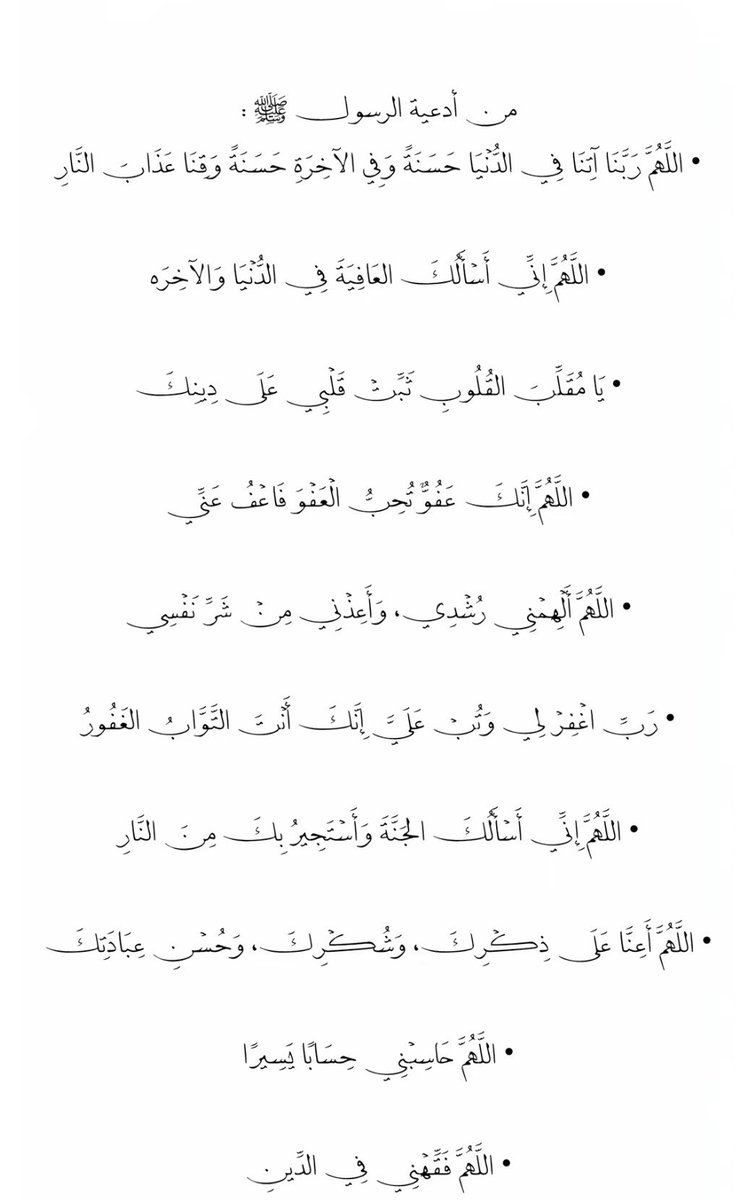 من أدعية الرسول ﷺ :
• اللَّهُمَّ رَبَّنَا آتِنَا فِي الدُّنْيَا حَسَنَةً وَفِي الآخِرَةِ حَسَنَةً وَقِنَا عَذَابَ النَّارِ
• اللَّهُمَّ إِنِّي أَسْأَلُكَ العَافِيَةَ فِي الدُّنْيَا وَالآخِرَه
• يَا مُقَلِّبَ القُلُوبِ ثَبِّتْ قَلْبِي عَلَى دِينِكَ
• اللَّهُمَّ إِنَّكَ عَفُوٌّ تُحِبُّ الْعَفْوَ فَاعْفُ عَنِّي
• اللَّهُمَّ أَلْهِمْنِي رُشْدِي، وَأَعِذْنِي مِنْ شَرِّ نَفْسِي
• رَبِّ اغْفِرْ لِي وَتُبْ عَلَيَّ إِنَّكَ أَنْتَ التَّوَّابُ الغَفُورُ
• اللَّهُمَّ إِنِّي أَسْأَلُكَ الجَنَّةَ وَأَسْتَجِيرُ بِكَ مِنَ النَّارِ
• اللَّهُمَّ أَعِنَّا عَلَى ذِكْرِكَ، وَشُكْرِكَ، وَحُسْنِ عِبَادَتِكَ
• اللَّهُمَّ حَاسِبْنِي حِسَابًا يَسِيرًا
• اللَّهُمَّ فَقِّهْنِي فِي الدِّينِ